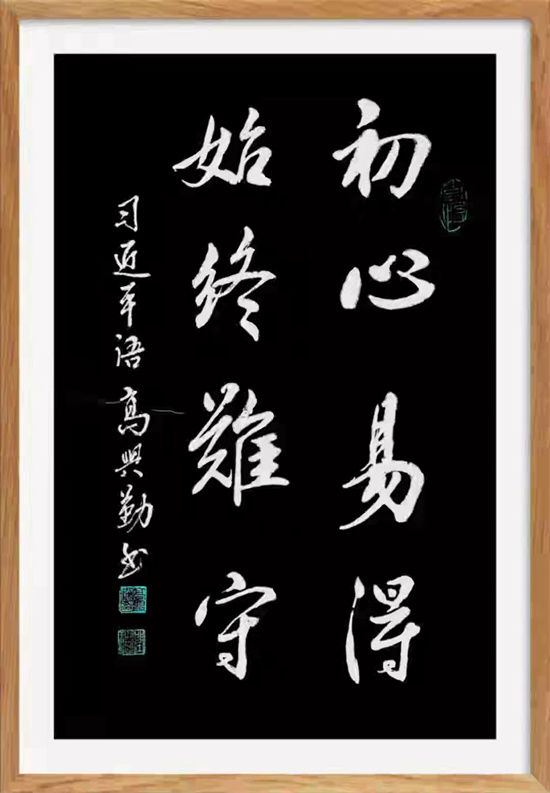 初心易得
始终難守
习近平语 高興勤书